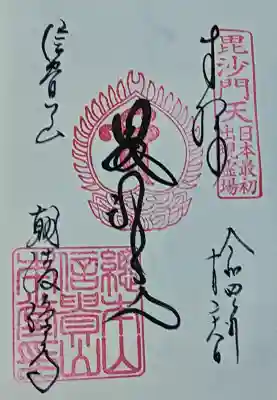 毘沙門天
日本最初
出現霊場
奉拝
令和四年
毘沙門天
總本山
信貴山
信貴山
朝護孫子寺